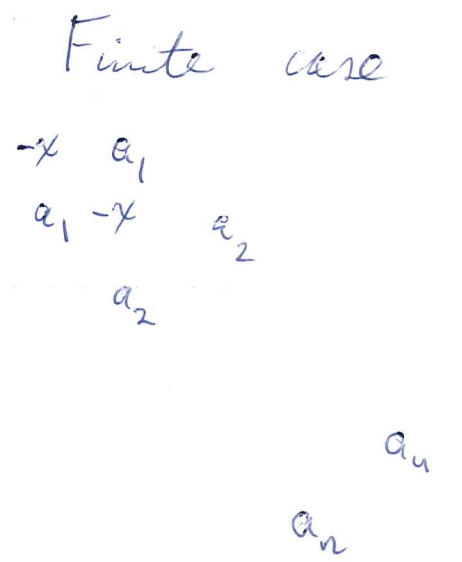 Finite case
-x a₁
a₁ -x a₂
a₂
aₙ
aₙ